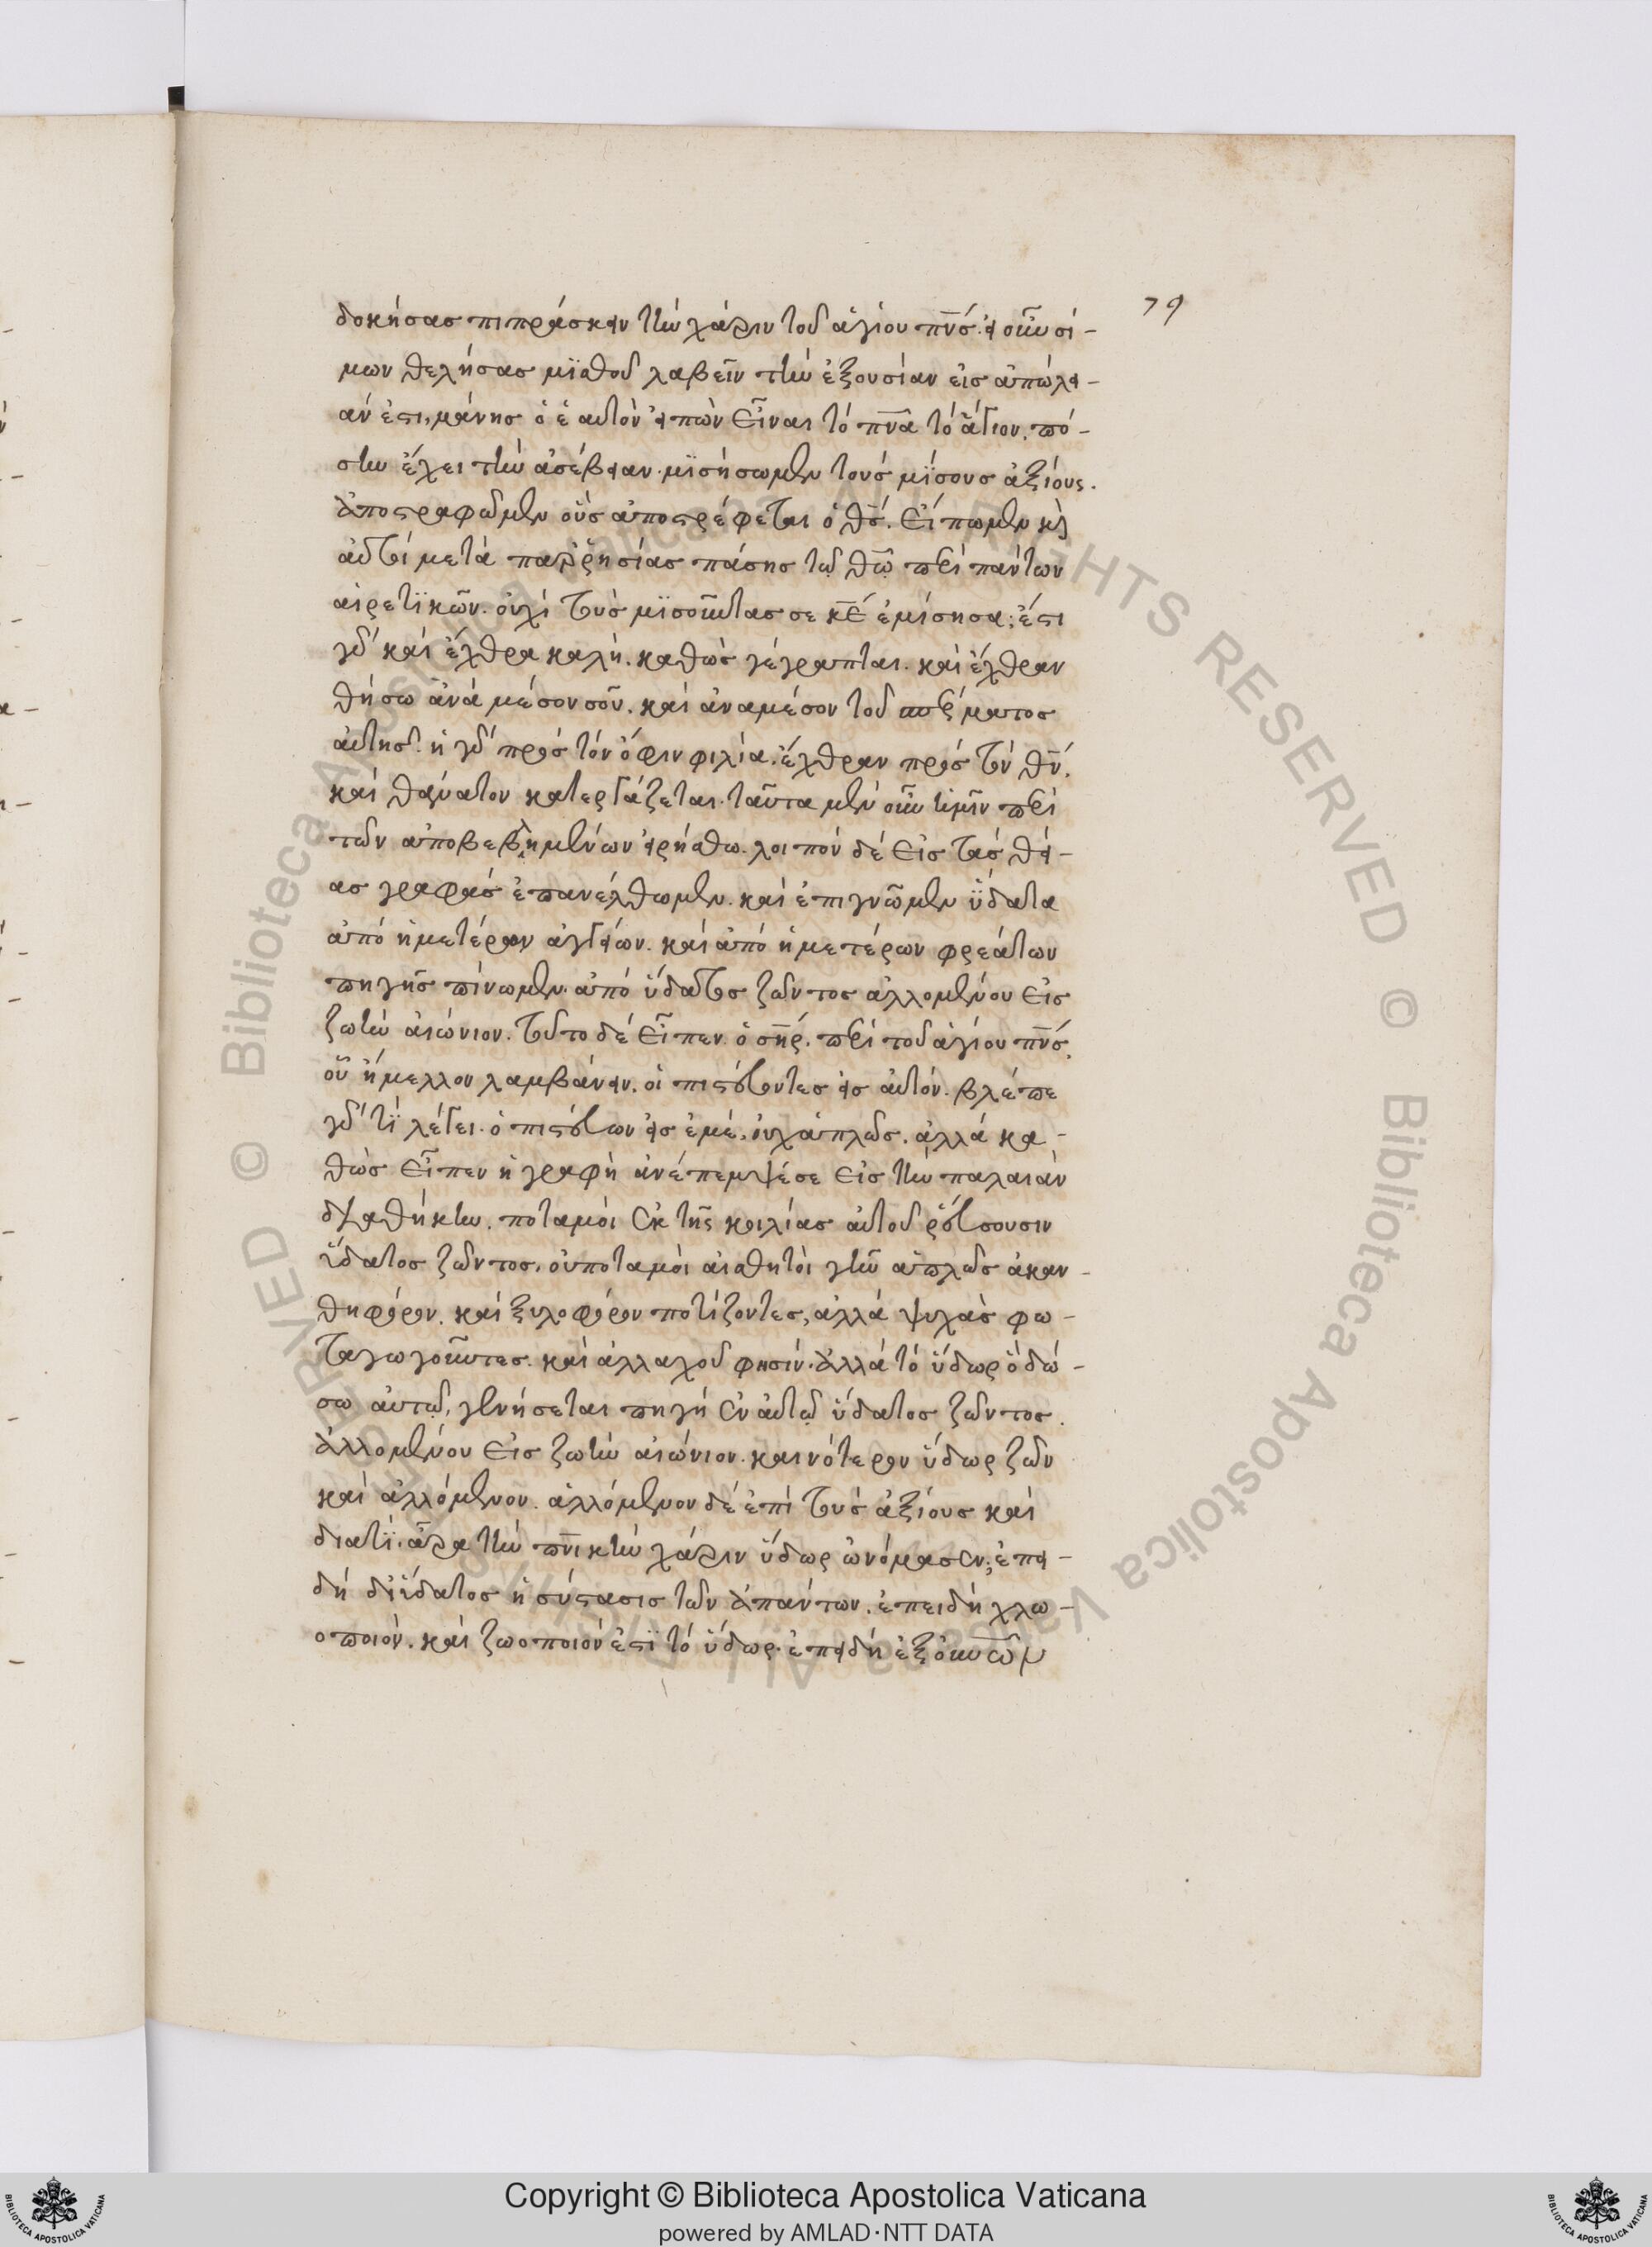 79
δοκήσασ πιπράσκειν τὴν χάριν τοῦ ἁγίου πν̅σ. εἰ οὖν σί-
μων θελήσασ μϊσθοῦ λαβεῖν τὴν ἐξουσίαν εἰσ ἀπώλει-
άν ἐστι, μάνησ ὁ ἑαυτὸν εἰπὼν εἶναι τό πν̅α τὸ ἅγιον. πό-
σην ἔχει τὴν ἀσέβειαν. μϊσήσωμεν τοὺσ μίσουσ ἀξίους.
ἀποστραφῶμεν οὓσ ἀποστρέφεται ὁ θ̅σ. εἴπωμεν κὶ
αὐτοὶ μετὰ παῤῥησίασ πάσησ τῷ θ̅ῷ περὶ πάντων
αἱρετϊκῶν. οὐχὶ τοὺσ μϊσοῦντασ σε κ̅ε ἐμίσησα; ἔστι
γὰρ καὶ ἔχθρα καλὴ. καθὼσ γέγραπται. καὶ ἔχθραν
θήσω ἀνὰ μέσον σοῦ. καὶ ἀναμέσον τοῦ σπέρματοσ
αὐτησ. ἡ γὰρ πρὸσ τὸν ὄφιν φιλία. ἔχθραν πρὸσ τὸν θ̅ν.
καὶ θάνατον κατεργάζεται. ταῦτα μὲν οὖν ἡμῖν περὶ
τῶν ἀποβεβλημένων εἰρήσθω. λοιπὸν δέ εἰσ τὰσ θεί-
ασ γραφὰσ ἐπανέλθωμεν. καὶ ἐπιγνῶμεν ὕδατα
ἀπό ἡμετέρων ἀγγείων. καὶ ἀπό ἡμετέρων φρεάτων
πηγῆσ πίνωμεν. ἀπό ὕδατοσ ζῶντοσ ἀλλομένου εἰσ
ζωὴν αἰώνιον. τοῦτο δέ εἶπεν. ὁ σ̅ηρ. περὶ τοῦ ἁγίου πν̅σ.
οὗ ἤμελλον λαμβάνειν. οἱ πιστεύοντεσ εἰσ αὐτόν. βλέπε
γὰρ τϊ λέγει. ὁ πιστεύων εἰσ ἐμέ. οὐχ ἁπλῶσ. ἀλλά κα-
θὼσ εἶπεν ἡ γραφὴ ἀνέπεμψέ σε εἰσ τὴν παλαιὰν
διαθήκην. ποταμοὶ ἐκ τῆς κοιλίασ αὐτοῦ ῥεύσουσιν
ὕδατοσ ζῶντοσ. οὐ ποταμοὶ αἰσθητοὶ γῆν ἁπλῶσ ἀκαν-
θηφόρον. καὶ ξυλοφόρον ποτίζοντεσ, ἀλλά ψυχὰσ φω-
ταγωγοῦντεσ. καὶ ἀλλαχοῦ φησίν. ἀλλά τό ὕδωρ ὃ δώ-
σω αὐτῷ, γενήσεται πηγή ἐν αὐτῷ ὕδατοσ ζῶντοσ.
ἀλλομένου εἰσ ζωὴν αἰώνιον. καινότερον ὕδωρ ζῶν
καὶ ἁλλόμενον. ἁλλόμενον δέ ἐπί τοὺσ ἀξίουσ καὶ
διατϊ. ἄρα τὴν πν̅ικὴν χάριν ὕδωρ ὠνόμασεν; ἐπει-
δή δι ὕδατοσ ἡ σύστασισ τῶν ἁπάντων. ἐπειδὴ χλω-
οποιὸν. καὶ ζωοποιόν ἐστϊ τό ὕδωρ. ἐπειδή ἐξ ου̅ν̅ω̅ν